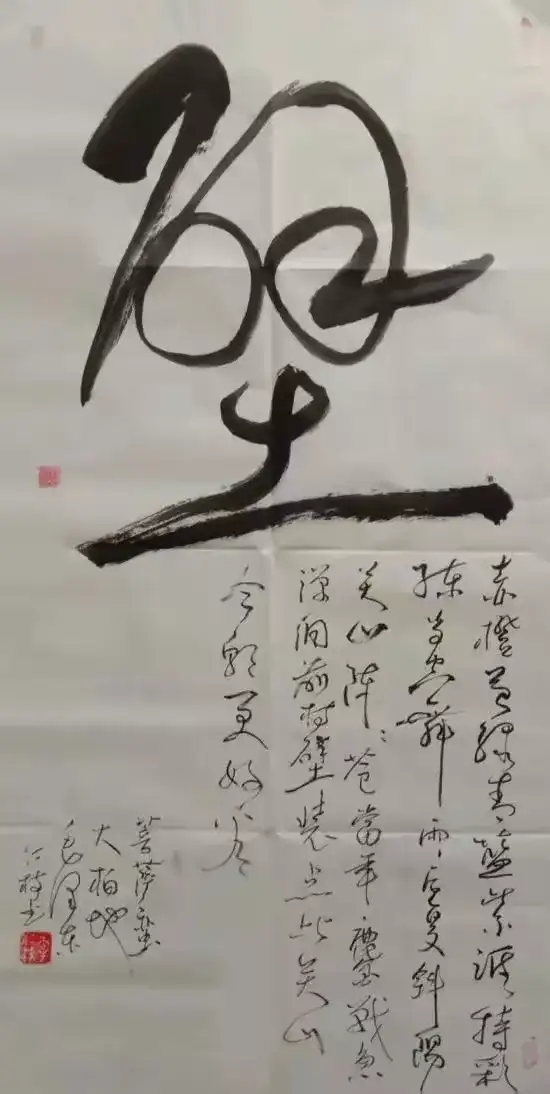 壁
赤橙黄绿青蓝紫谁持彩
练当空舞雨后复斜阳
关山阵々苍當年鏖战急
弹洞前村壁装点此关山
今朝更好看
菩萨蛮
大柏地
毛泽东
书